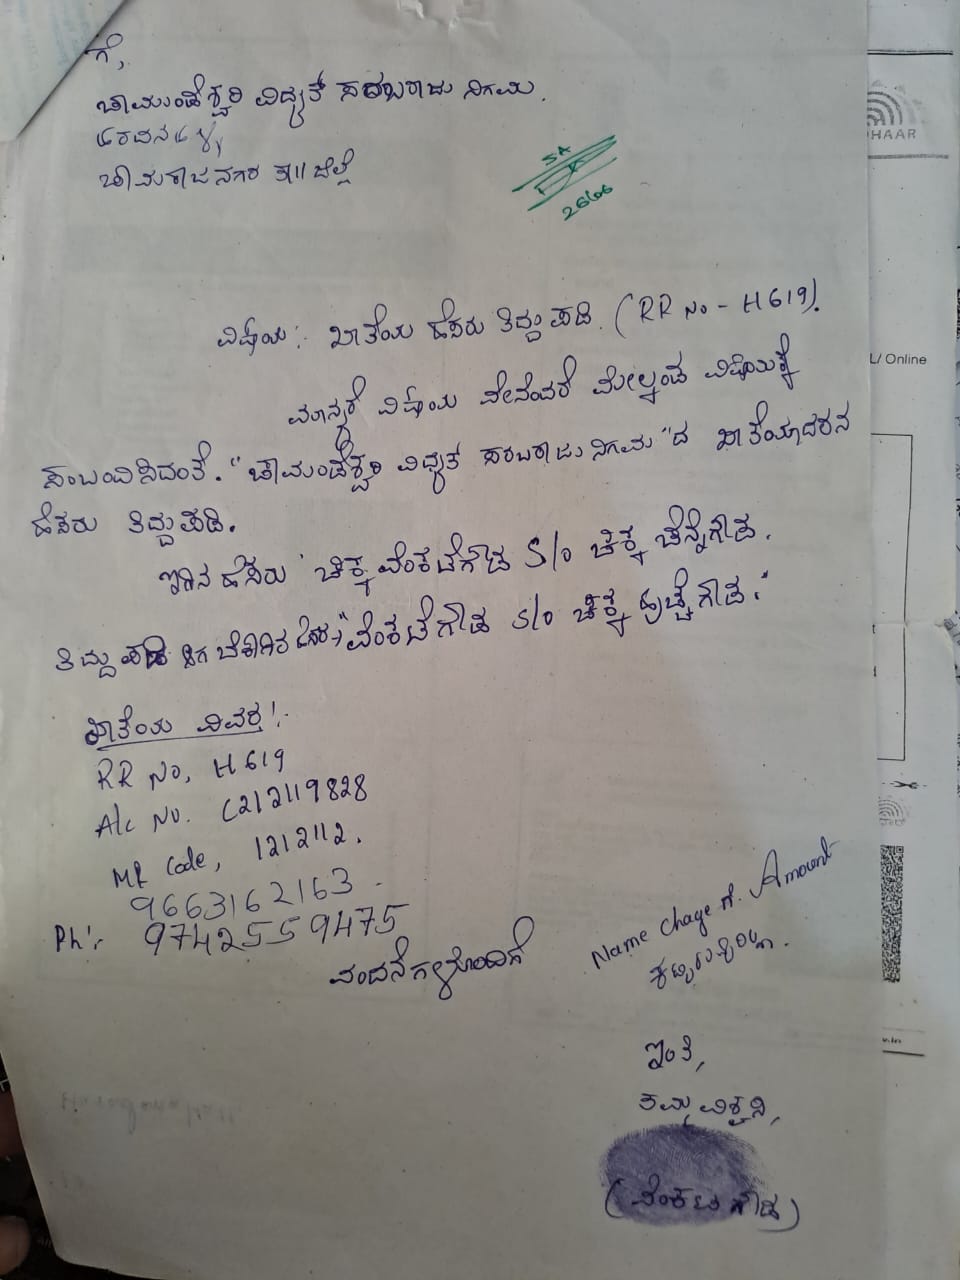 ಗೆ,
ಚಾಮುಂಡೇಶ್ವರಿ ವಿದ್ಯುತ್ ಸರಬರಾಜು ನಿಗಮ.
ಚಾಮರಾಜನಗರ ತಾ|| ಜಿಲ್ಲೆ
SA
26/06
HAAR
L/ Online
ವಿಷಯ:- ಖಾತೆಯ ಹೆಸರು ತಿದ್ದುಪಡಿ. (RR No - H619).
ಮಾನ್ಯರೆ ವಿಷಯ ವೇನೆಂದರೆ ಮೇಲ್ಕಂಡ ವಿಷಯಕ್ಕೆ
ಸಂಬಂವಿಸಿದಂತೆ. "ಚಾಮುಂಡೇಶ್ವರಿ ವಿದ್ಯುತ್ ಸರಬರಾಜು ನಿಗಮ"ದ ಖಾತೆಯಾದರನ
ಹೆಸರು ತಿದ್ದುಪಡಿ.
ಈಗಿನ ಹೆಸರು ' ಚಿಕ್ಕವೆಂಕಟೆಗೌಡ S/o ಚಿಕ್ಕ ಚೆನ್ನೆಗೌಡ.
ತಿದ್ದುಪಡಿ "ವೆಂಕಟೆಗೌಡ S/o ಚಿಕ್ಕ ಪುಟ್ಟೆಗೌಡ."
ಖಾತೆಯ ವಿವರ:-
RR No, H619
A/c No. C212119828
MR Code, 1212112.
9663162163
Ph:- 97425559475
ವಂದನೆಗಳೊಂದಿಗೆ
Name Chage ಗೆ. Amount
ಇಂತಿ,
ತಮ್ಮ ವಿಶ್ವಸಿ,
(ವೆಂಕಟೆಗೌಡ)